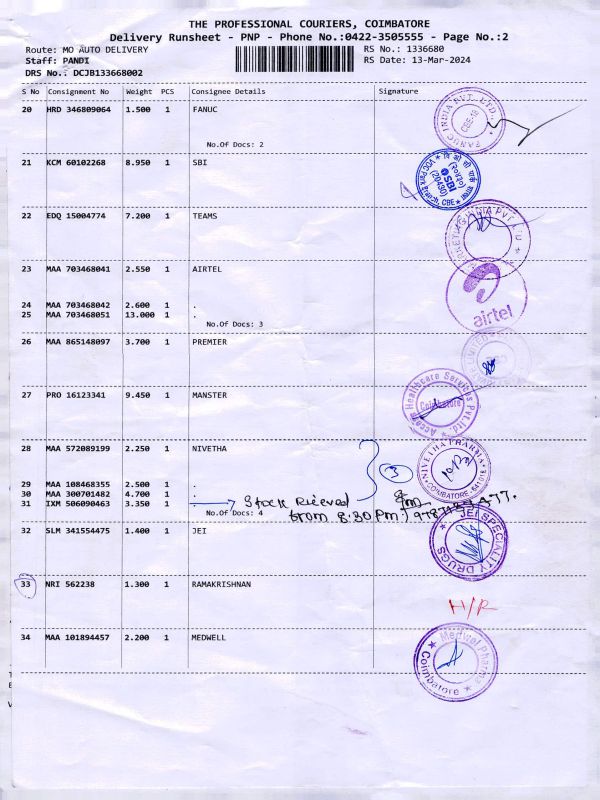 THE PROFESSIONAL COURIERS, COIMBATORE
Delivery Runsheet - PNP - Phone No.:0422-3505555 - Page No.:2
Route: MO AUTO DELIVERY RS No.: 1336680
Staff: PANDI RS Date: 13-Mar-2024
DRS No.: DCJB133668002
S No Consignment No Weight PCS Consignee Details Signature
20 HRD 346809064 1.500 1 FANUC
FANUC INDIA PVT. LTD. CBE-18
No.Of Docs: 2
21 KCM 60102268 8.950 1 SBI
SBI (20430) VOC Park Branch, CBE
22 EDQ 15004774 7.200 1 TEAMS
23 MAA 703468041 2.550 1 AIRTEL
24 MAA 703468042 2.600 1 .
25 MAA 703468051 13.000 1 .
airtel
No.Of Docs: 3
26 MAA 865148097 3.700 1 PREMIER
27 PRO 16123341 9.450 1 MANSTER
Healthcare Services Pvt.Ltd. Coimbatore
28 MAA 572089199 2.250 1 NIVETHA
NIVETHA PHARMA COIMBATORE
3
29 MAA 108468355 2.500 1 .
30 MAA 300701482 4.700 1 .
31 IXM 506090463 3.350 1 . Stock Rieeved
No.Of Docs: 4 from 8:30 Pm.
32 SLM 341554475 1.400 1 JEI
JEI SPECIALITY DRUGS
33 NRI 562238 1.300 1 RAMAKRISHNAN
H/R
34 MAA 101894457 2.200 1 MEDWELL
Medwell Pharma Coimbatore